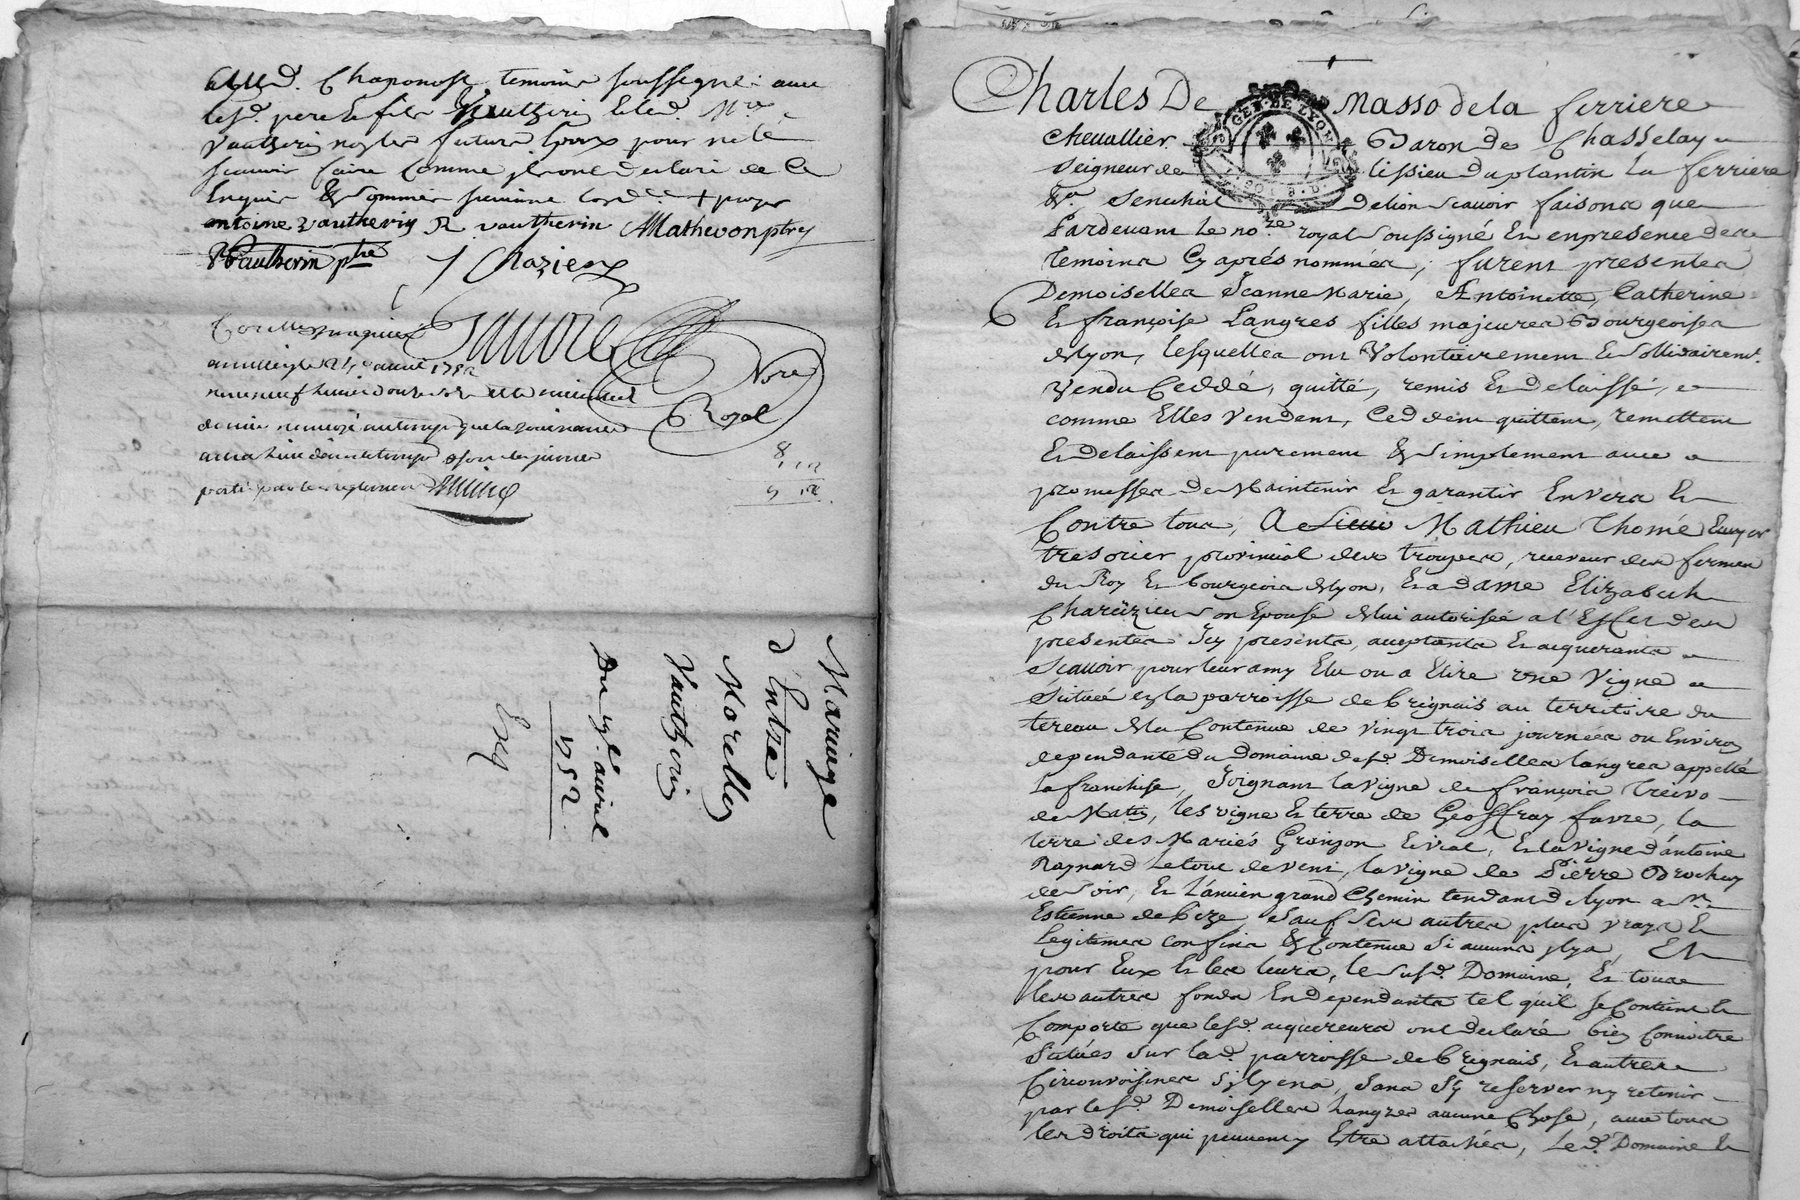 aud. Chaponost temoins soussignés avec
lesd. pere & fils Vautherin & led. Mre
Vautherin non les futurs Epoux pour ne le
scavoir faire comme ils ont declaré de ce
Enquis & Sommés suivant l'ord.ce
antoine vautherin R. vautherin Mathevon ptre
Vautherin ptre Chazien
Favre
Nore
Royal
8
Mariage
d'Entre
Morellon
Vautherin
Du 14e avril
1752
Exp
Charles De Masso de la ferriere
Chevallier Baron de Chasselay
Seigneur de lissieu du plantin la ferriere
& Senechal de lion scavoir faisons que
Pardevant le no.re royal soussigné & en presence des
temoins Cy aprés nommés, furent presentes
Demoiselles Jeanne Marie, Antoinette, Catherine
& françoise Langres filles majeures Bourgeoises
de lyon, lesquelles ont Volontairement & sollidairemt.
Vendu Ceddé, quitté, remis & delaissé,
comme Elles Vendent, Ceddent quittent, remettent
& delaissent purement & simplement avec
promesses de Maintenir & garantir Envers &
Contre tous, A Sieur Mathieu Thomé Ecuyer
tresorier provincial des troupes, receveur des fermes
du Roy & bourgeois de lyon, & a dame Elizabeth
Charëzieu son Epouse de lui autorisée a l'Effet des
presentes Icy presents, acceptants & acquerants
Scavoir pour leur amy Elu ou a Elire une Vigne
Située en la parroisse de brignais au territoire du
tereau de la Contenue de vingt trois journées ou Environ
dependante du domaine desd. Demoiselles langres appellé
la franchise, Joignant la Vigne de françois Treivo
de Matin, les vigne & terre de Geoffray favre, la
terre des Mariés Granjon & vial, & la vigne d'antoine
Raynard le tout de vent, la vigne de Pierre Brochay
de soir, & l'ancien grand Chemin tendant de lyon a St.
Estienne de bize, sauf ses autres plus vrays &
legitimes confins & Contenue si aucuns il y a, Et
pour Eux & les leurs, le susd. Domaine, & tous
les autres fonds En dependants tel qu'il se Contient &
Comporte que lesd. acquereurs ont declaré bien Connoitre
Situés sur lad. parroisse de brignais, & autres
Circonvoisines s'il y en a, sans s'y reserver ny retenir
par lesd. Demoiselles langres aucune Chose, avec tous
les droits qui peuvent y Estre attachés, Led. Domaine &